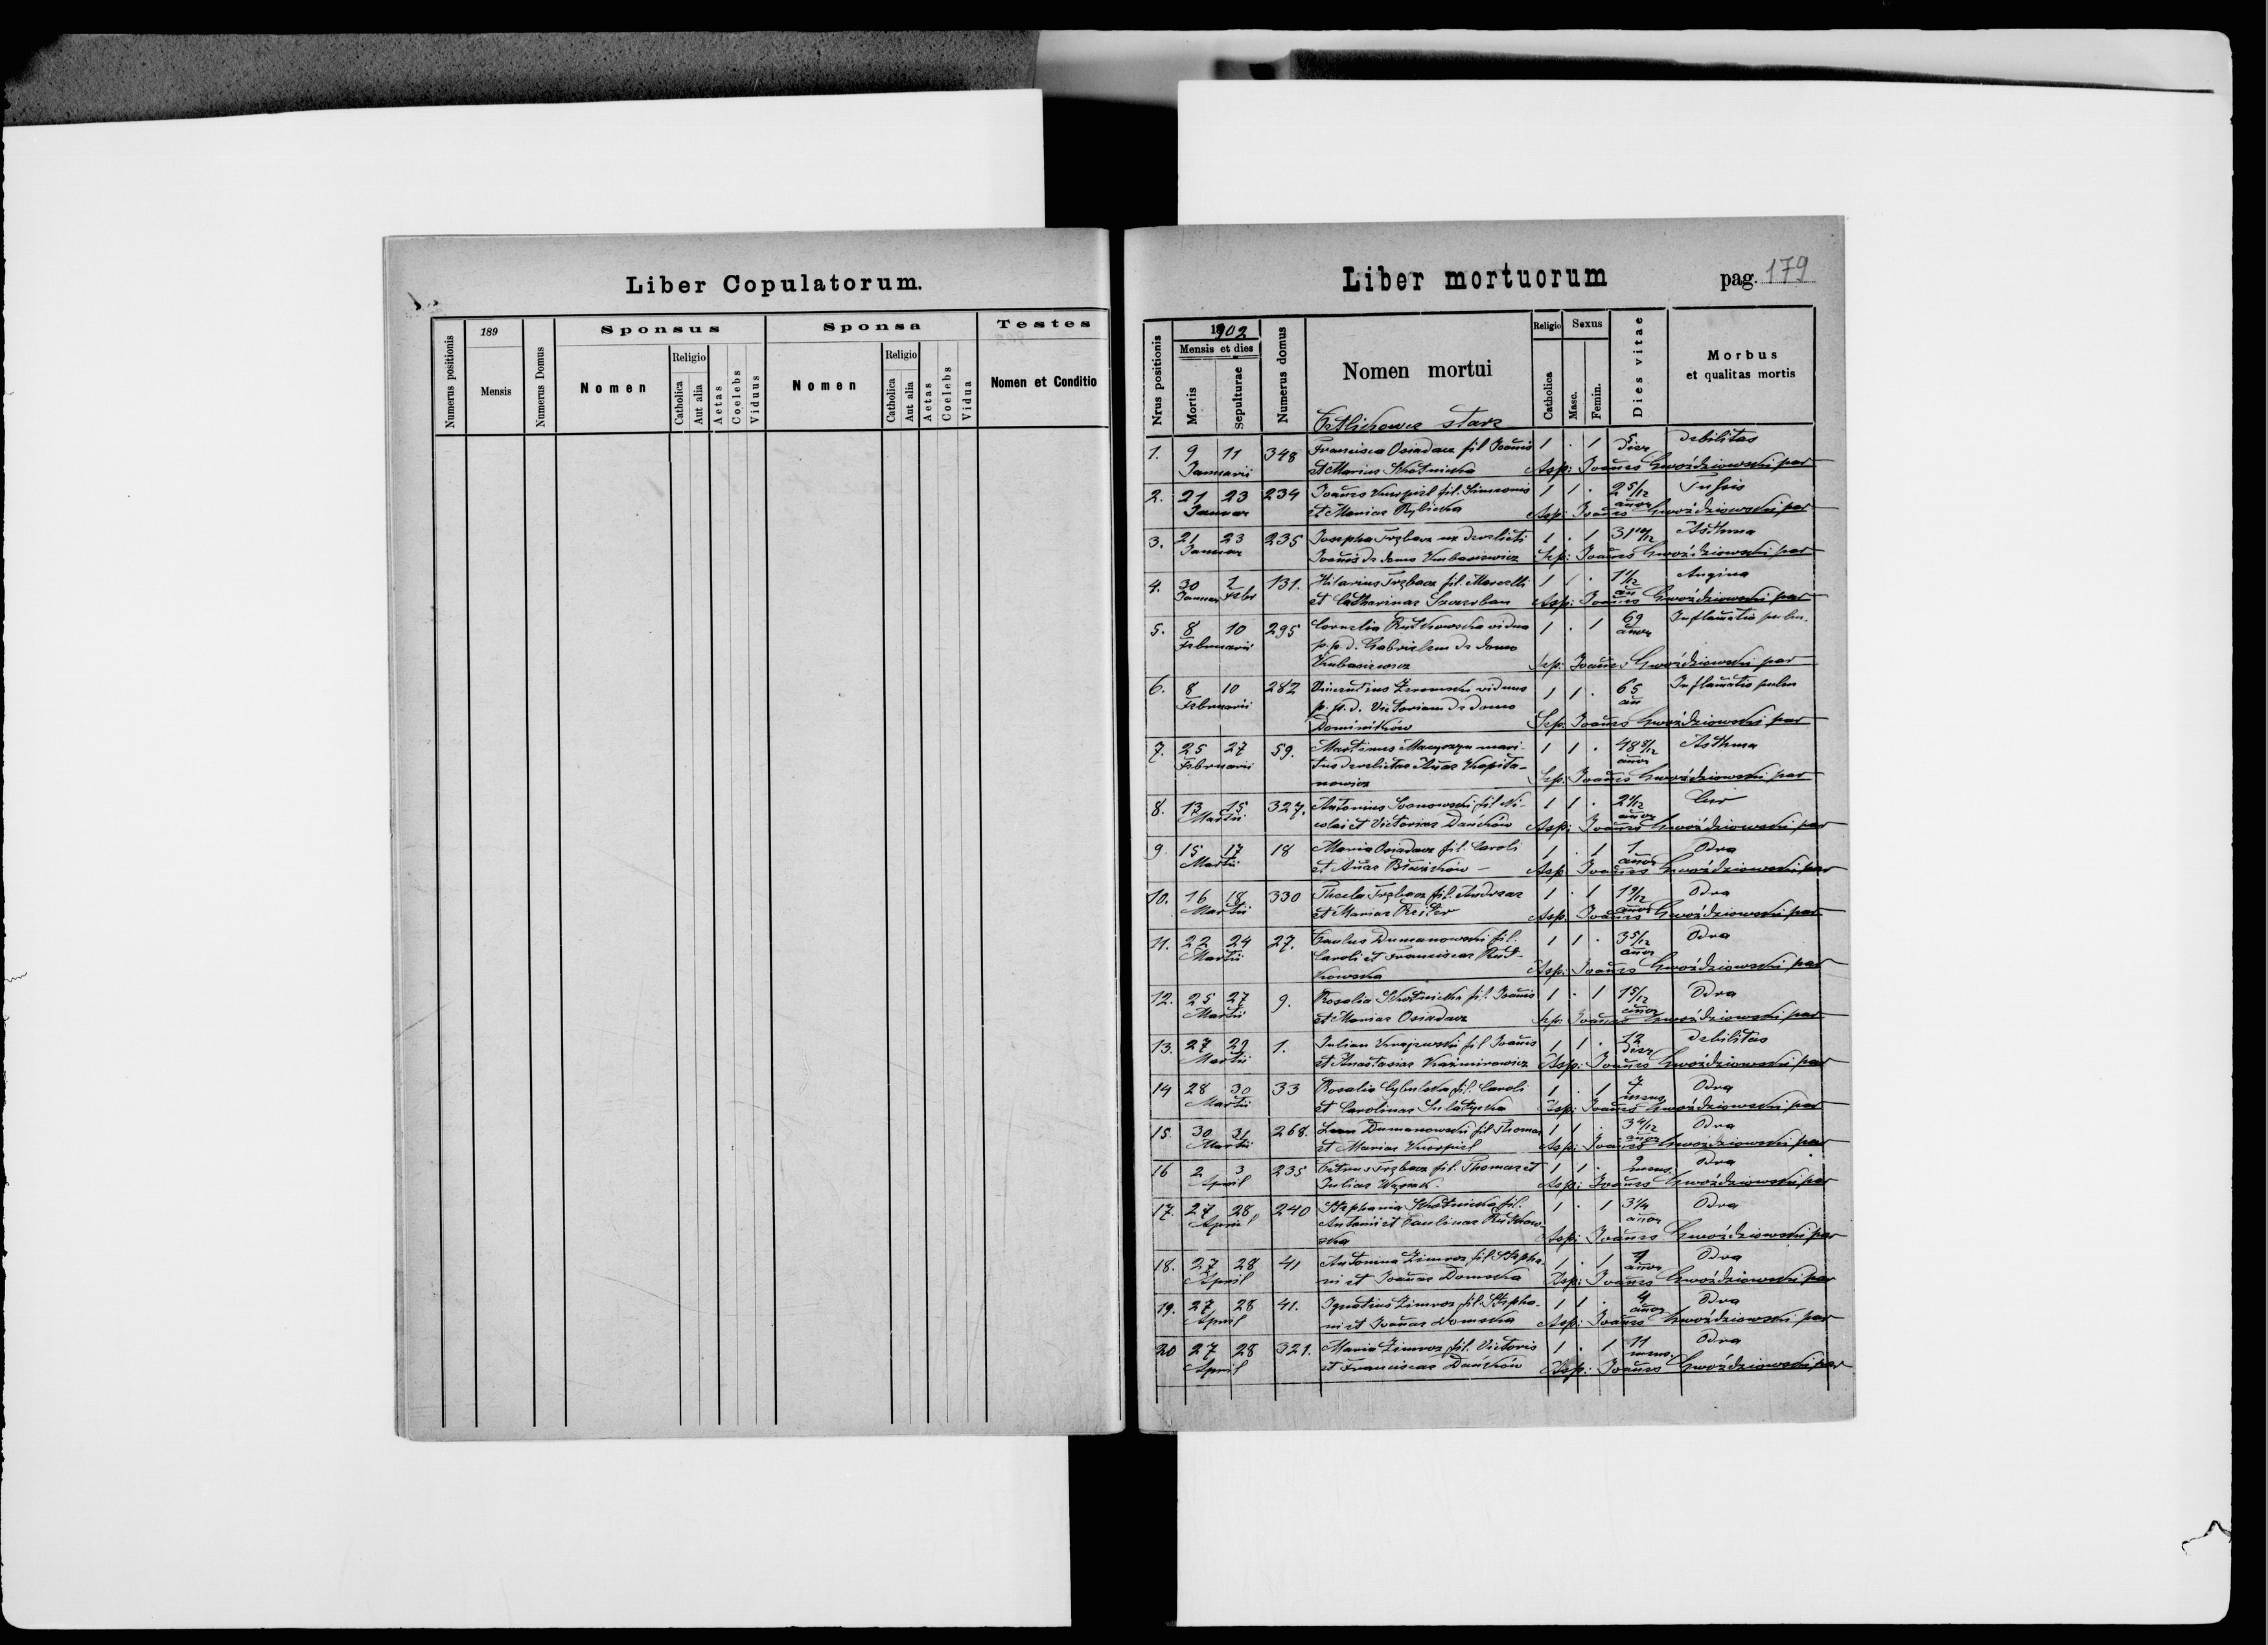 Liber Copulatorum.
Numerus positionis
189
Mensis
Numerus Domus
Sponsus
Nomen
Religio
Catholica
Aut alia
Aetas
Coelebs
Vidus
Sponsa
Nomen
Religio
Catholica
Aut alia
Aetas
Coelebs
Vidua
Testes
Nomen et Conditio
Liber mortuorum
pag. 179
Nrus positionis
1902
Mensis et dies
Mortis
Sepulturae
Numerus domus
Nomen mortui
Religio
Catholica
Sexus
Masc.
Femin.
Dies vitae
Morbus
et qualitas mortis
Petlikowce stare
1. 9 11 348 Francisca Osiadacz fil Joannis 1 . 1 5 debilitas
Januarii et Mariae Skotnicka diez Asp: Joannes Gwoździowski par
2. 21 23 234 Joannes Knispiel fil. Simeonis 1 1 . 2 5/12 Tussis
Januar et Mariae Rybicka annor Asp: Joannes Gwoździowski par
3. 21 23 235 Josepha Trębacz ux derelicti 1 . 1 31 10/12 Asthma
Januar Joannis de domo Kubasiewicz Sep: Joannes Gwoździowski par
4. 30 1 131. Hilarius Trębacz fil. Marcelli 1 1 . 1 1/12 Angina
Januar Febr et Catharinae Szczerban an Asp: Joannes Gwoździowski par
5. 8 10 295 Cornelia Rutkowska vidua 1 . 1 69 Inflamatio pulm.
Februarii p.p.d. Gabrielem de domo annor
Kubasiewicz Sep: Joannes Gwoździowski par
6. 8 10 282 Vincentius Żeromski viduus 1 1 . 65 Inflamatio pulm
Februarii p.p.d. Victoriam de domo an
Dominików Sep: Joannes Gwoździowski par
7. 25 27 59. Martinus mari- 1 1 . 48 8/12 Asthma
Februarii tus derelictae Annae Kapita- annor
nowicz Sep: Joannes Gwoździowski par
8. 13 15 327. Antonius fil Ni- 1 1 . 2 1/12
Martii colai et Victoriae Dańków annor Asp: Joannes Gwoździowski par
9. 15 17 18 Maria Osiadacz fil. Caroli 1 . 1 1 Odra
Martii et Annae annor Asp Joannes Gwoździowski par
10. 16 18 330 Thecla Trębacz fil. Andreae 1 . 1 1 9/12 Odra
Martii et Mariae Reiter annor Asp. Joannes Gwoździowski par
11. 22 24 27. Paulus Dumanowski fil. 1 1 . 3 5/12 Odra
Martii Caroli et Franciscae Rut- annor
kowska Asp: Joannes Gwoździowski par
12. 25 27 9. Rosalia Skotnicka fil. Joannis 1 . 1 1 5/12 Odra
Martii et Mariae Osiadacz annor Sep: Joannes Gwoździowski par
13. 27 29 1. Julian fil Joannis 1 1 . 12 debilitas
Martii et Anastasiae Kazimirowicz diez Asp: Joannes Gwoździowski par
14 28 30 33 Rosalia Cybulska fil. Caroli 1 . 1 7 Odra
Martii et Carolinae Sulatycka mens Asp: Joannes Gwoździowski par
15 30 31 268. Leon Dumanowski fil Thomae 1 1 . 3 4/12 Odra
Martii et Mariae Knispiel annor Asp: Joannes Gwoździowski par
16 2 3 235 Petrus Trębacz fil. Thomae et 1 1 . 9 Odra
April Juliae mens. Asp: Joannes Gwoździowski par
17. 27 28 240 Stephania Skotnicka fil. 1 . 1 3 1/4 Odra
April Antonii et Paulinae Rutkow- annor
ska Asp: Joannes Gwoździowski par
18. 27 28 41 Antonina Zimroz fil Stepha- 1 . 1 1 Odra
April ni et Joannae Domska annor Asp: Joannes Gwoździowski par
19. 27 28 41. Ignatius Zimroz fil. Stepha- 1 1 . 4 Odra
April ni et Joannae Domska annor Asp: Joannes Gwoździowski par
20 27 28 321. Maria Zimroz fil. Victoris 1 . 1 11 Odra
April et Franciscae Dańków mens. Asp: Joannes Gwoździowski par